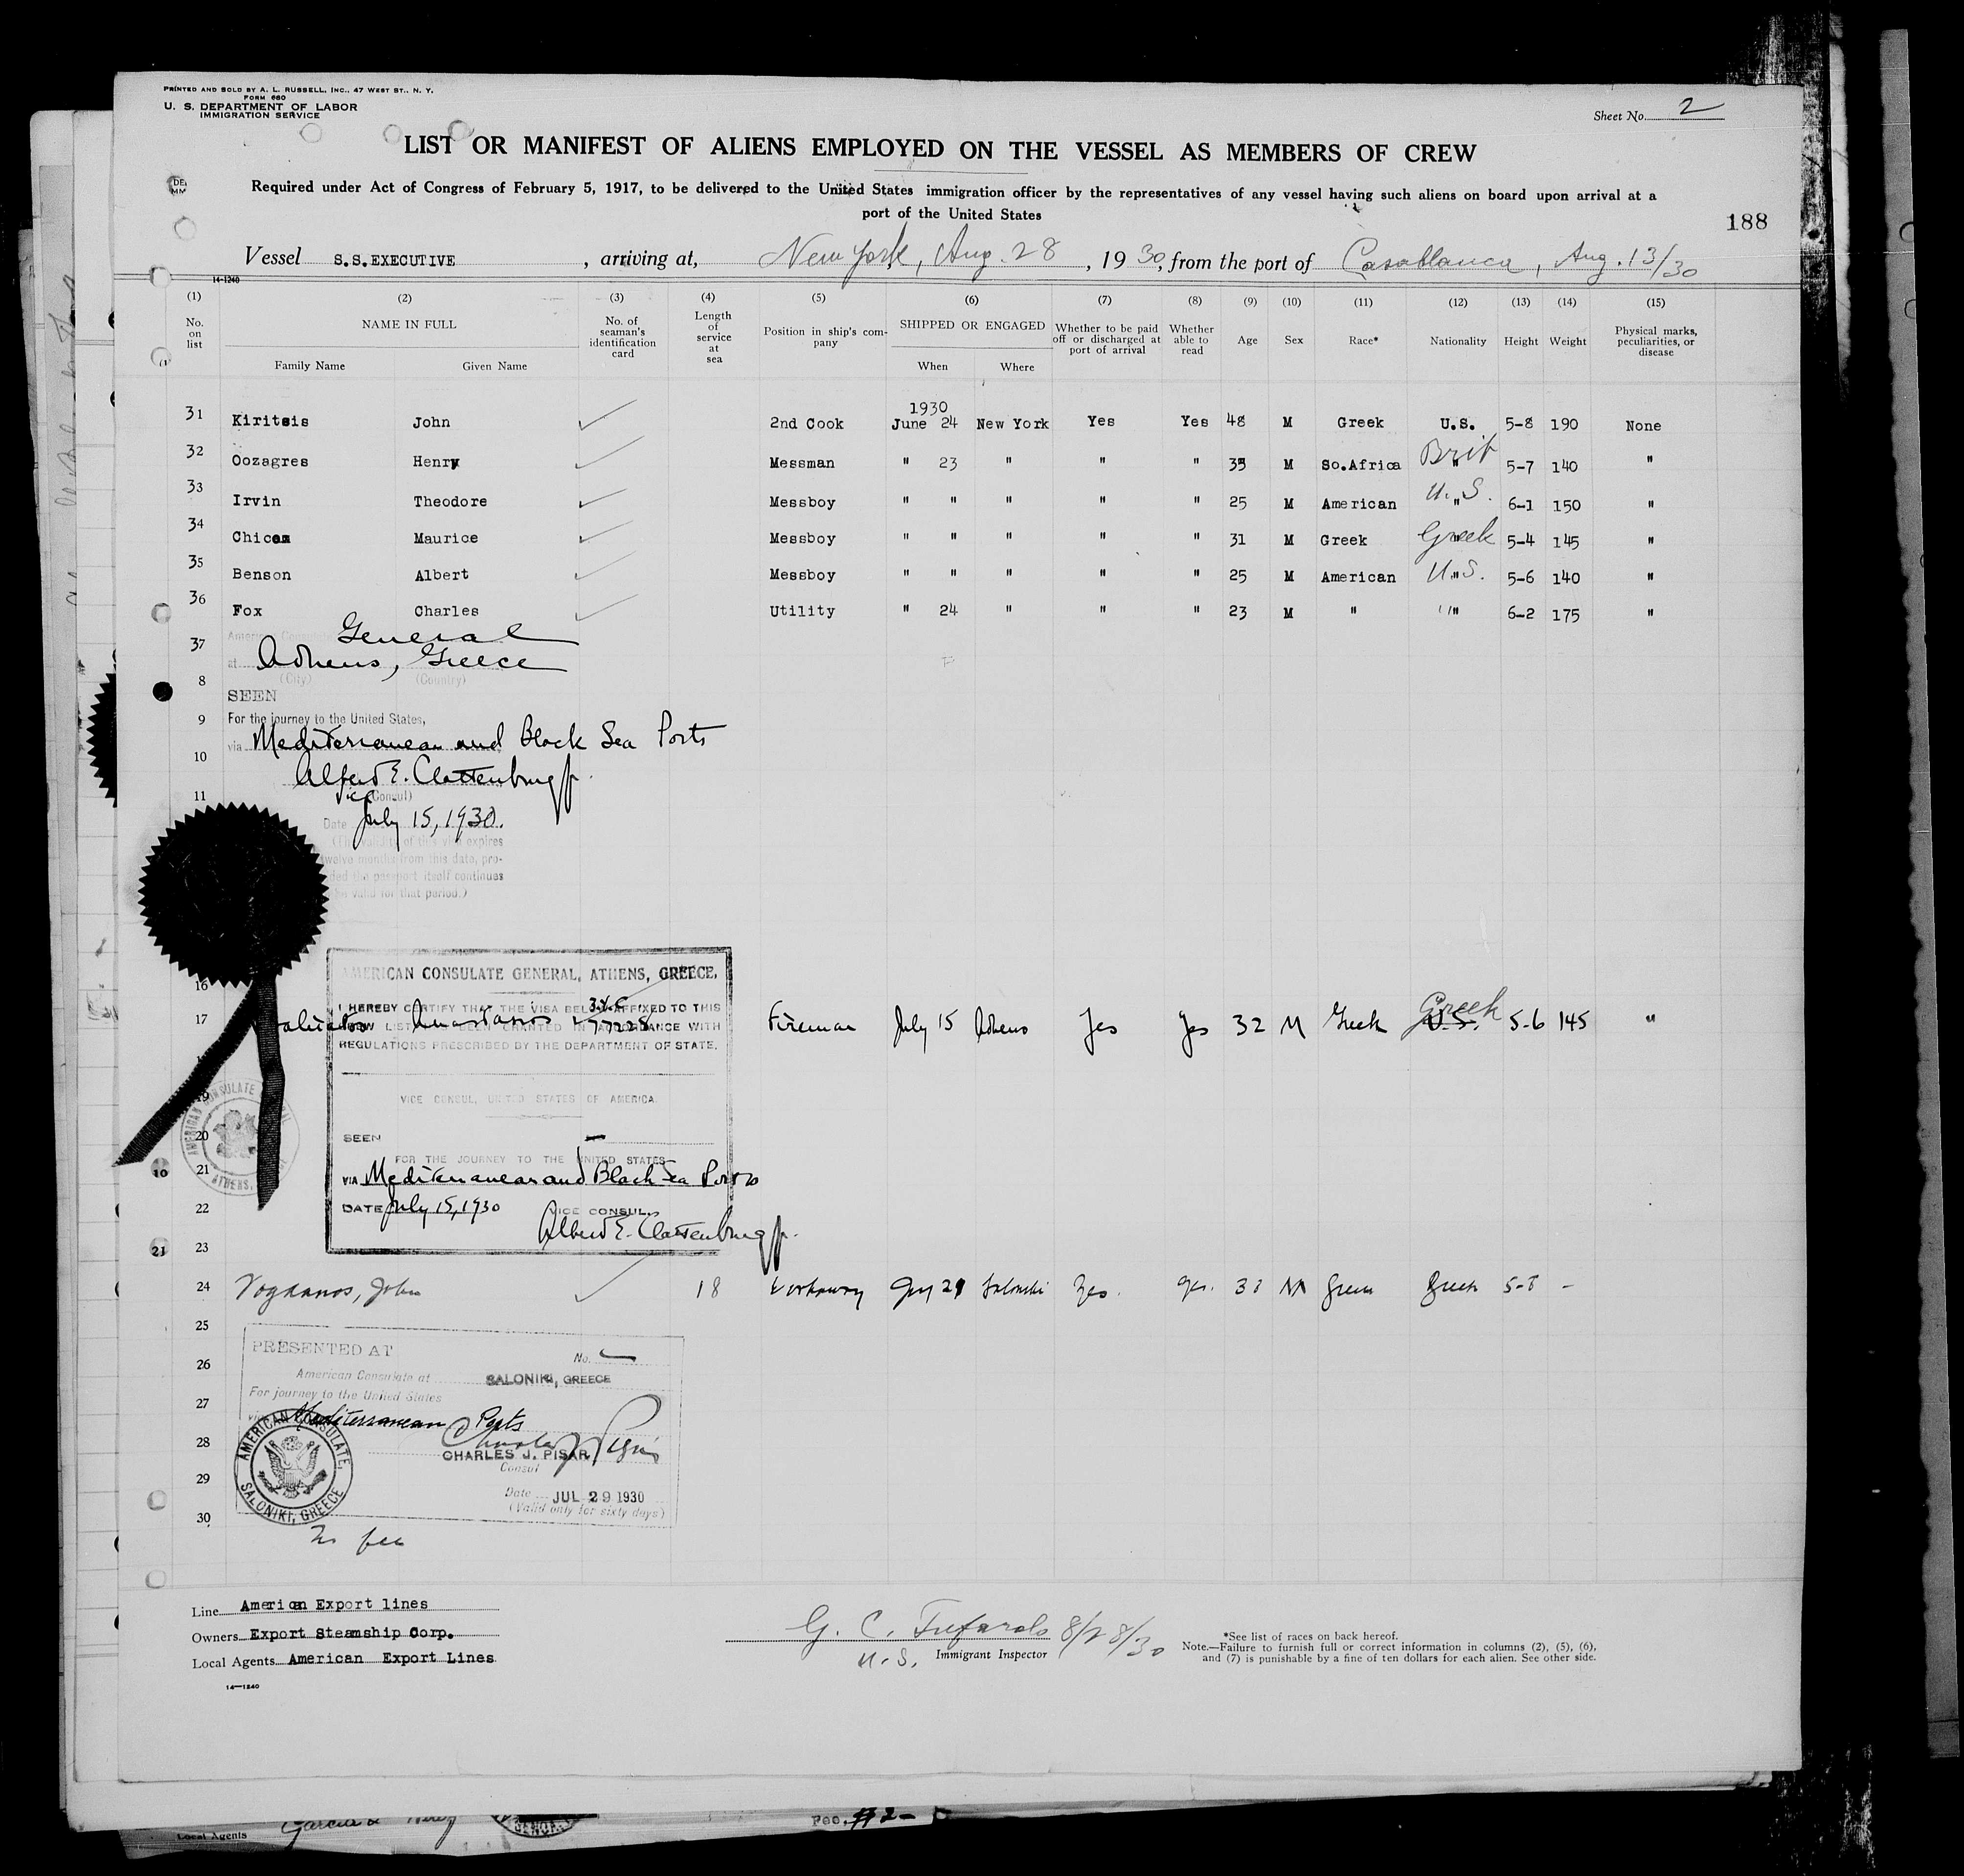 PRINTED AND SOLD BY A. L. RUSSELL, INC., 47 WEST ST., N. Y.
FORM 680
U. S. DEPARTMENT OF LABOR
IMMIGRATION SERVICE
Sheet No. 2
LIST OR MANIFEST OF ALIENS EMPLOYED ON THE VESSEL AS MEMBERS OF CREW
Required under Act of Congress of February 5, 1917, to be delivered to the United States immigration officer by the representatives of any vessel having such aliens on board upon arrival at a
port of the United States
188
Vessel S.S.EXECUTIVE , arriving at, New York, Aug. 28 , 1930, from the port of Casablanca, Aug. 13/30
14-1240
(1) (2) (3) (4) (5) (6) (7) (8) (9) (10) (11) (12) (13) (14) (15)
No. on list NAME IN FULL Family Name Given Name No. of seaman's identification card Length of service at sea Position in ship's company SHIPPED OR ENGAGED When Where Whether to be paid off or discharged at port of arrival Whether able to read Age Sex Race* Nationality Height Weight Physical marks, peculiarities, or disease
1930
31 Kiritsis John 2nd Cook June 24 New York Yes Yes 48 M Greek U.S. 5-8 190 None
32 Oozagres Henry Messman " 23 " " " 35 M So.Africa Brit " 5-7 140 "
33 Irvin Theodore Messboy " " " " " 25 M American U.S. " 6-1 150 "
34 Chicas Maurice Messboy " " " " " 31 M Greek Greek 5-4 145 "
35 Benson Albert Messboy " " " " " 25 M American U.S. " 5-6 140 "
36 Fox Charles Utility " 24 " " " 23 M " " 6-2 175 "
American Consulate General
37
at Athens, Greece
(City) (Country)
8
SEEN
9 For the journey to the United States,
via Mediterranean and Black Sea Ports
10
Alfred E. Clattenburg Jr.
11 Vice (Consul)
Date July 15, 1930.
(The validity of this visa expires
twelve months from this date, pro-
vided the passport itself continues
to be valid for that period.)
AMERICAN CONSULATE GENERAL, ATHENS, GREECE.
16
I HEREBY CERTIFY THAT THE VISA BELOW AFFIXED TO THIS
CREW LIST HAS BEEN GRANTED IN ACCORDANCE WITH
REGULATIONS PRESCRIBED BY THE DEPARTMENT OF STATE.
17 Fireman July 15 Athens Yes Yes 32 M Greek U.S. Greek 5-6 145 "
VICE CONSUL, UNITED STATES OF AMERICA.
19
AMERICAN CONSULATE GENERAL ATHENS,
20 SEEN
FOR THE JOURNEY TO THE UNITED STATES
10 21 VIA Mediterranean and Black Sea Ports
22 DATE July 15, 1930 VICE CONSUL.
Alfred E. Clattenburg Jr.
21 23
24 Vogdanos, John 18 Workaway July 29 Saloniki Yes. Yes. 38 M Greek Greek 5-8 -
25
PRESENTED AT
26 No.
American Consulate at SALONIKI, GREECE
For journey to the United States
27
via Mediterranean Ports
28 CHARLES J. PISAR
Consul
29 Date JUL 29 1930
(Valid only for sixty days)
30
AMERICAN CONSULATE, SALONIKI, GREECE
No fee
Line American Export lines
Owners Export Steamship Corp.
Local Agents American Export Lines
14-1240
G. C. Tufarolo 8/28/30
U.S. Immigrant Inspector
*See list of races on back hereof.
Note.—Failure to furnish full or correct information in columns (2), (5), (6),
and (7) is punishable by a fine of ten dollars for each alien. See other side.
Local Agents Garcia &
Fee, #2-